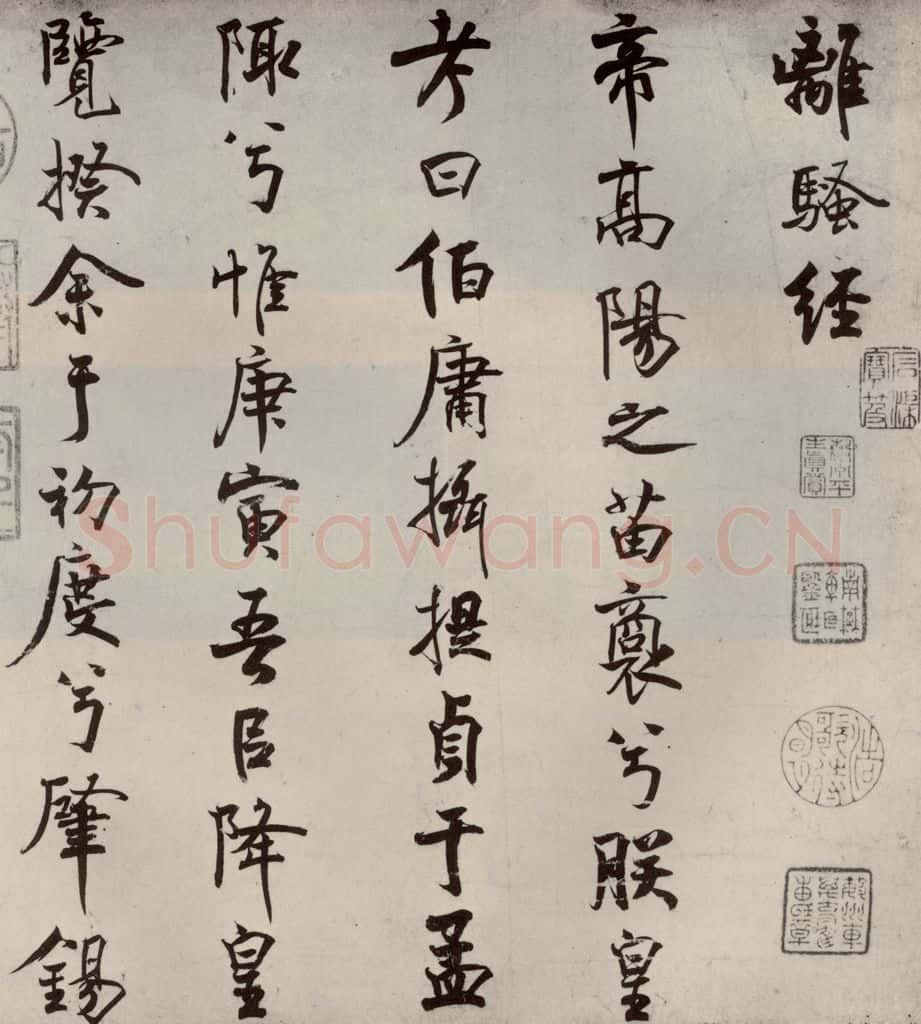 離騷經
帝高陽之苗裔兮朕皇
考曰伯庸攝提貞于孟
陬兮惟庚寅吾㠯降皇
覽揆余于初度兮肇錫
Shufawang.CN